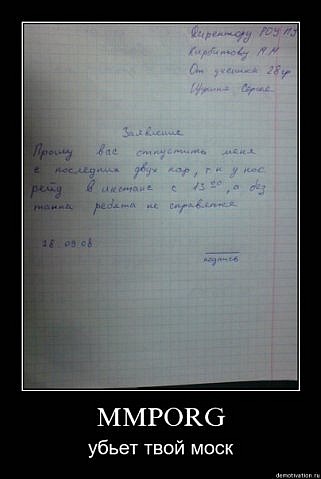 Директору РОУ ПУ
Карбитову А.М
От ученика 28 гр
Щукина Сергея
Заявление
Прошу вас отпустить меня
с последних двух пар, т.к у нас
рейд в инстанс с 13 00, а без
танка ребята не справятся
28.09.08
подпись
MMPORG
убьет твой моск
demotivation.ru